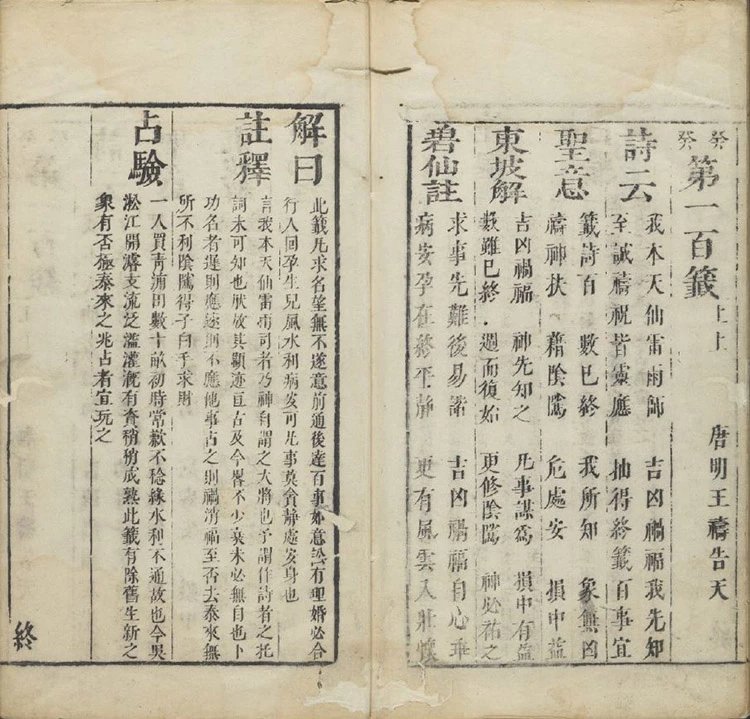 癸癸 第一百籤 上上 唐明王禱告天
詩云
我本天仙雷雨師 吉凶禍福我先知
至誠禱祝皆靈應 抽得終籤百事宜
聖意
籤詩百 數已終 我所知 象無凶
禱神扶 藉陰騭 危處安 損中益
東坡解
吉凶禍福 神先知之 凡事謀爲 損中有益
數雖已終 週而復始 更修陰騭 神必祐之
碧仙註
求事先難後易諧 吉凶禍福自心乖
病安孕在終平靜 更有風雲入壯懷
解曰
此籤凡求名望無不遂意前通後達百事如意訟有理婚必合
行人回孕生兒風水利病安可凡事莫貪靜處安身也
註釋
言我本天仙雷雨司者乃神自謂之大將也予謂作詩者之托
詞未可知也厥故其顯迹亘古及今畧不少衰未必無自也卜
功名者遲則應速則不應他事占之則禍消福至否去泰來無
所不利陰騭得子白手求財
占驗
一人買靑浦田數十畝初時常歉不稔緣水利不通故也今吳
淞江開濬支流泛濫灌漑有資稍稍成熟此籤有除舊生新之
象有否極泰來之兆占者宜玩之
終